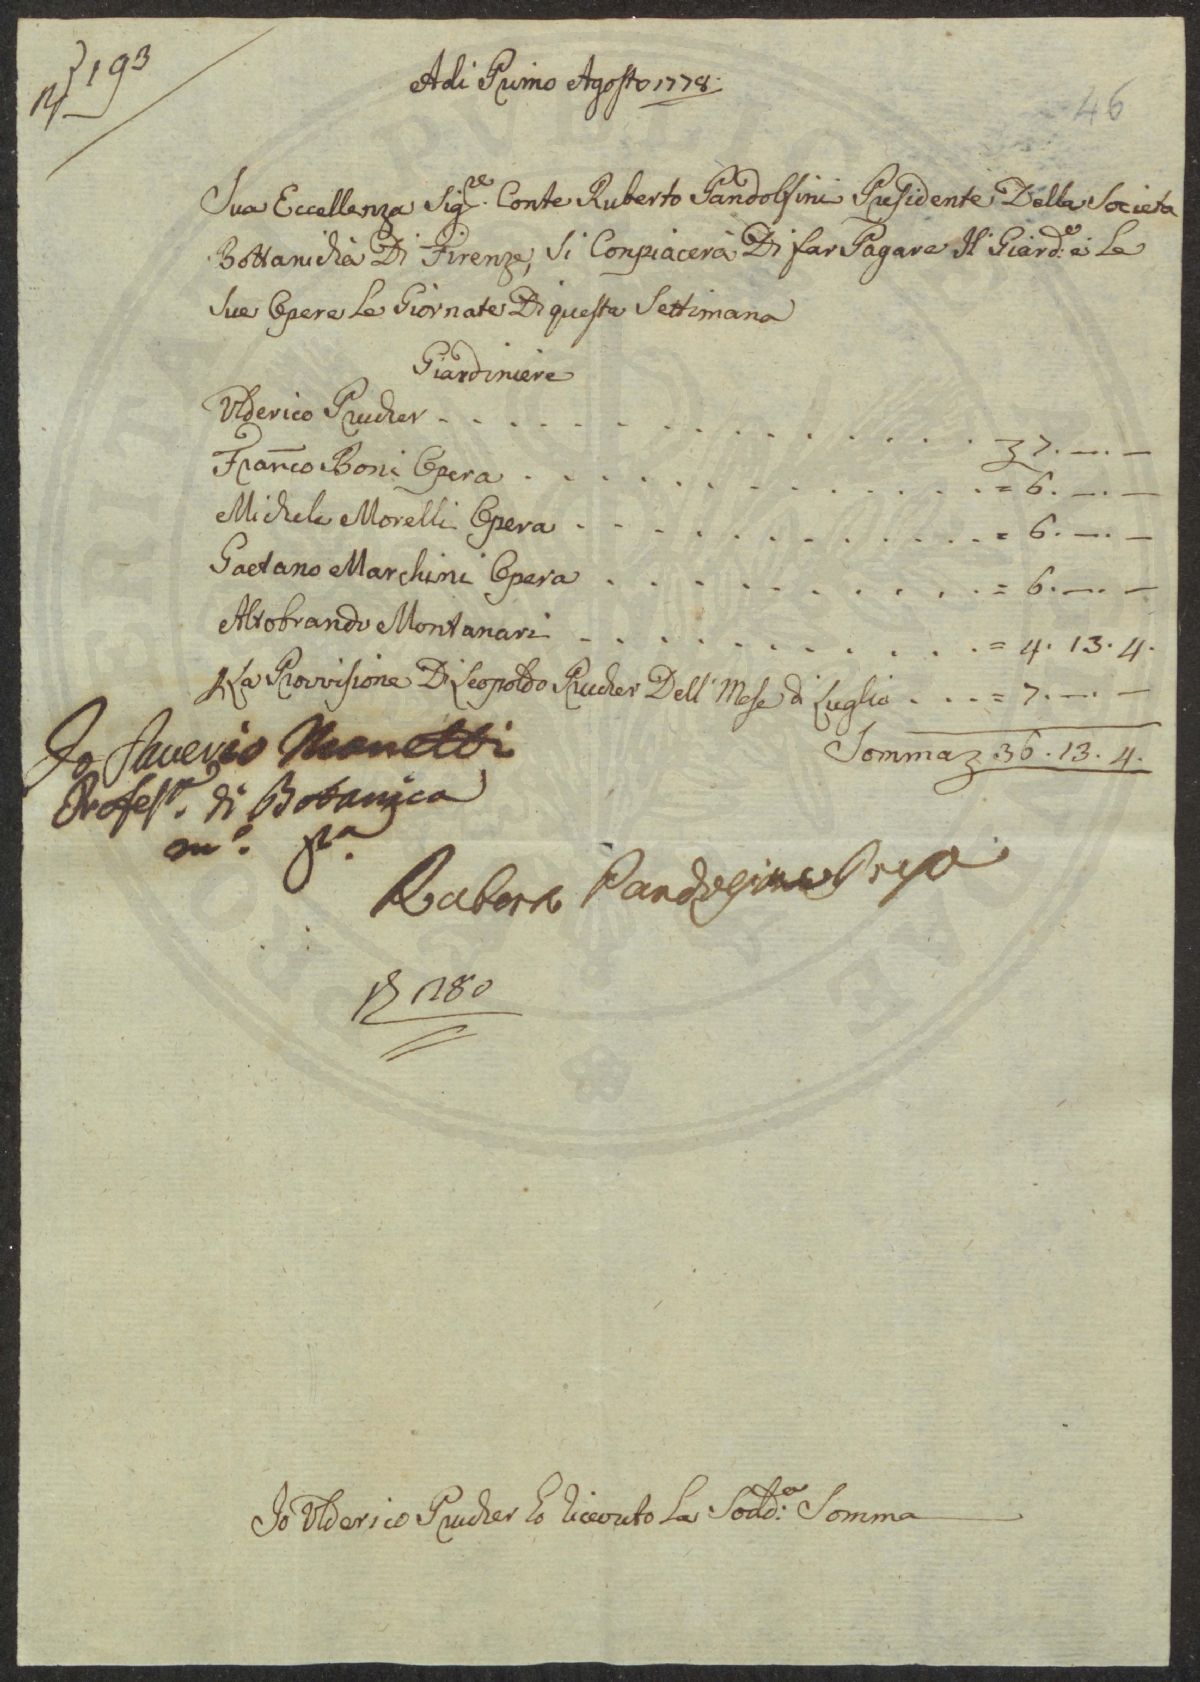 N 193
Adi Primo Agosto 1778.
46
Sua Eccellenza Sig.re Conte Ruberto Pandolfini Presidente Della Societa
Bottanicha Di Firenze, Si Conpiacerà Di far Pagare Il Giard.e è Le
Sue Opere Le Giornate Di questa Settimana
Giardiniere
Ulderico Prucher - - - - - - - - - - - - - - - - 7. —. —
Fran̄co Boni Opera - - - - - - - - - - - - - - = 6. —. —
Michele Morelli Opera - - - - - - - - - - - - = 6. —. —
Gaetano Marchini Opera - - - - - - - - - - - = 6. —. —
Altobrando Montanari - - - - - - - - - - - = 4. 13. 4.
La Provvisione Di Leopoldo Prucher Dell' Mese di Luglio - - - = 7. —. —
Somma 36. 13. 4.
Io Saverio Manetti
Profess.re di Botanica
m.o p.a
Ruberto Pandolfini
1280
Io Ulderico Prucher ho riceuto La Sodd.a Somma